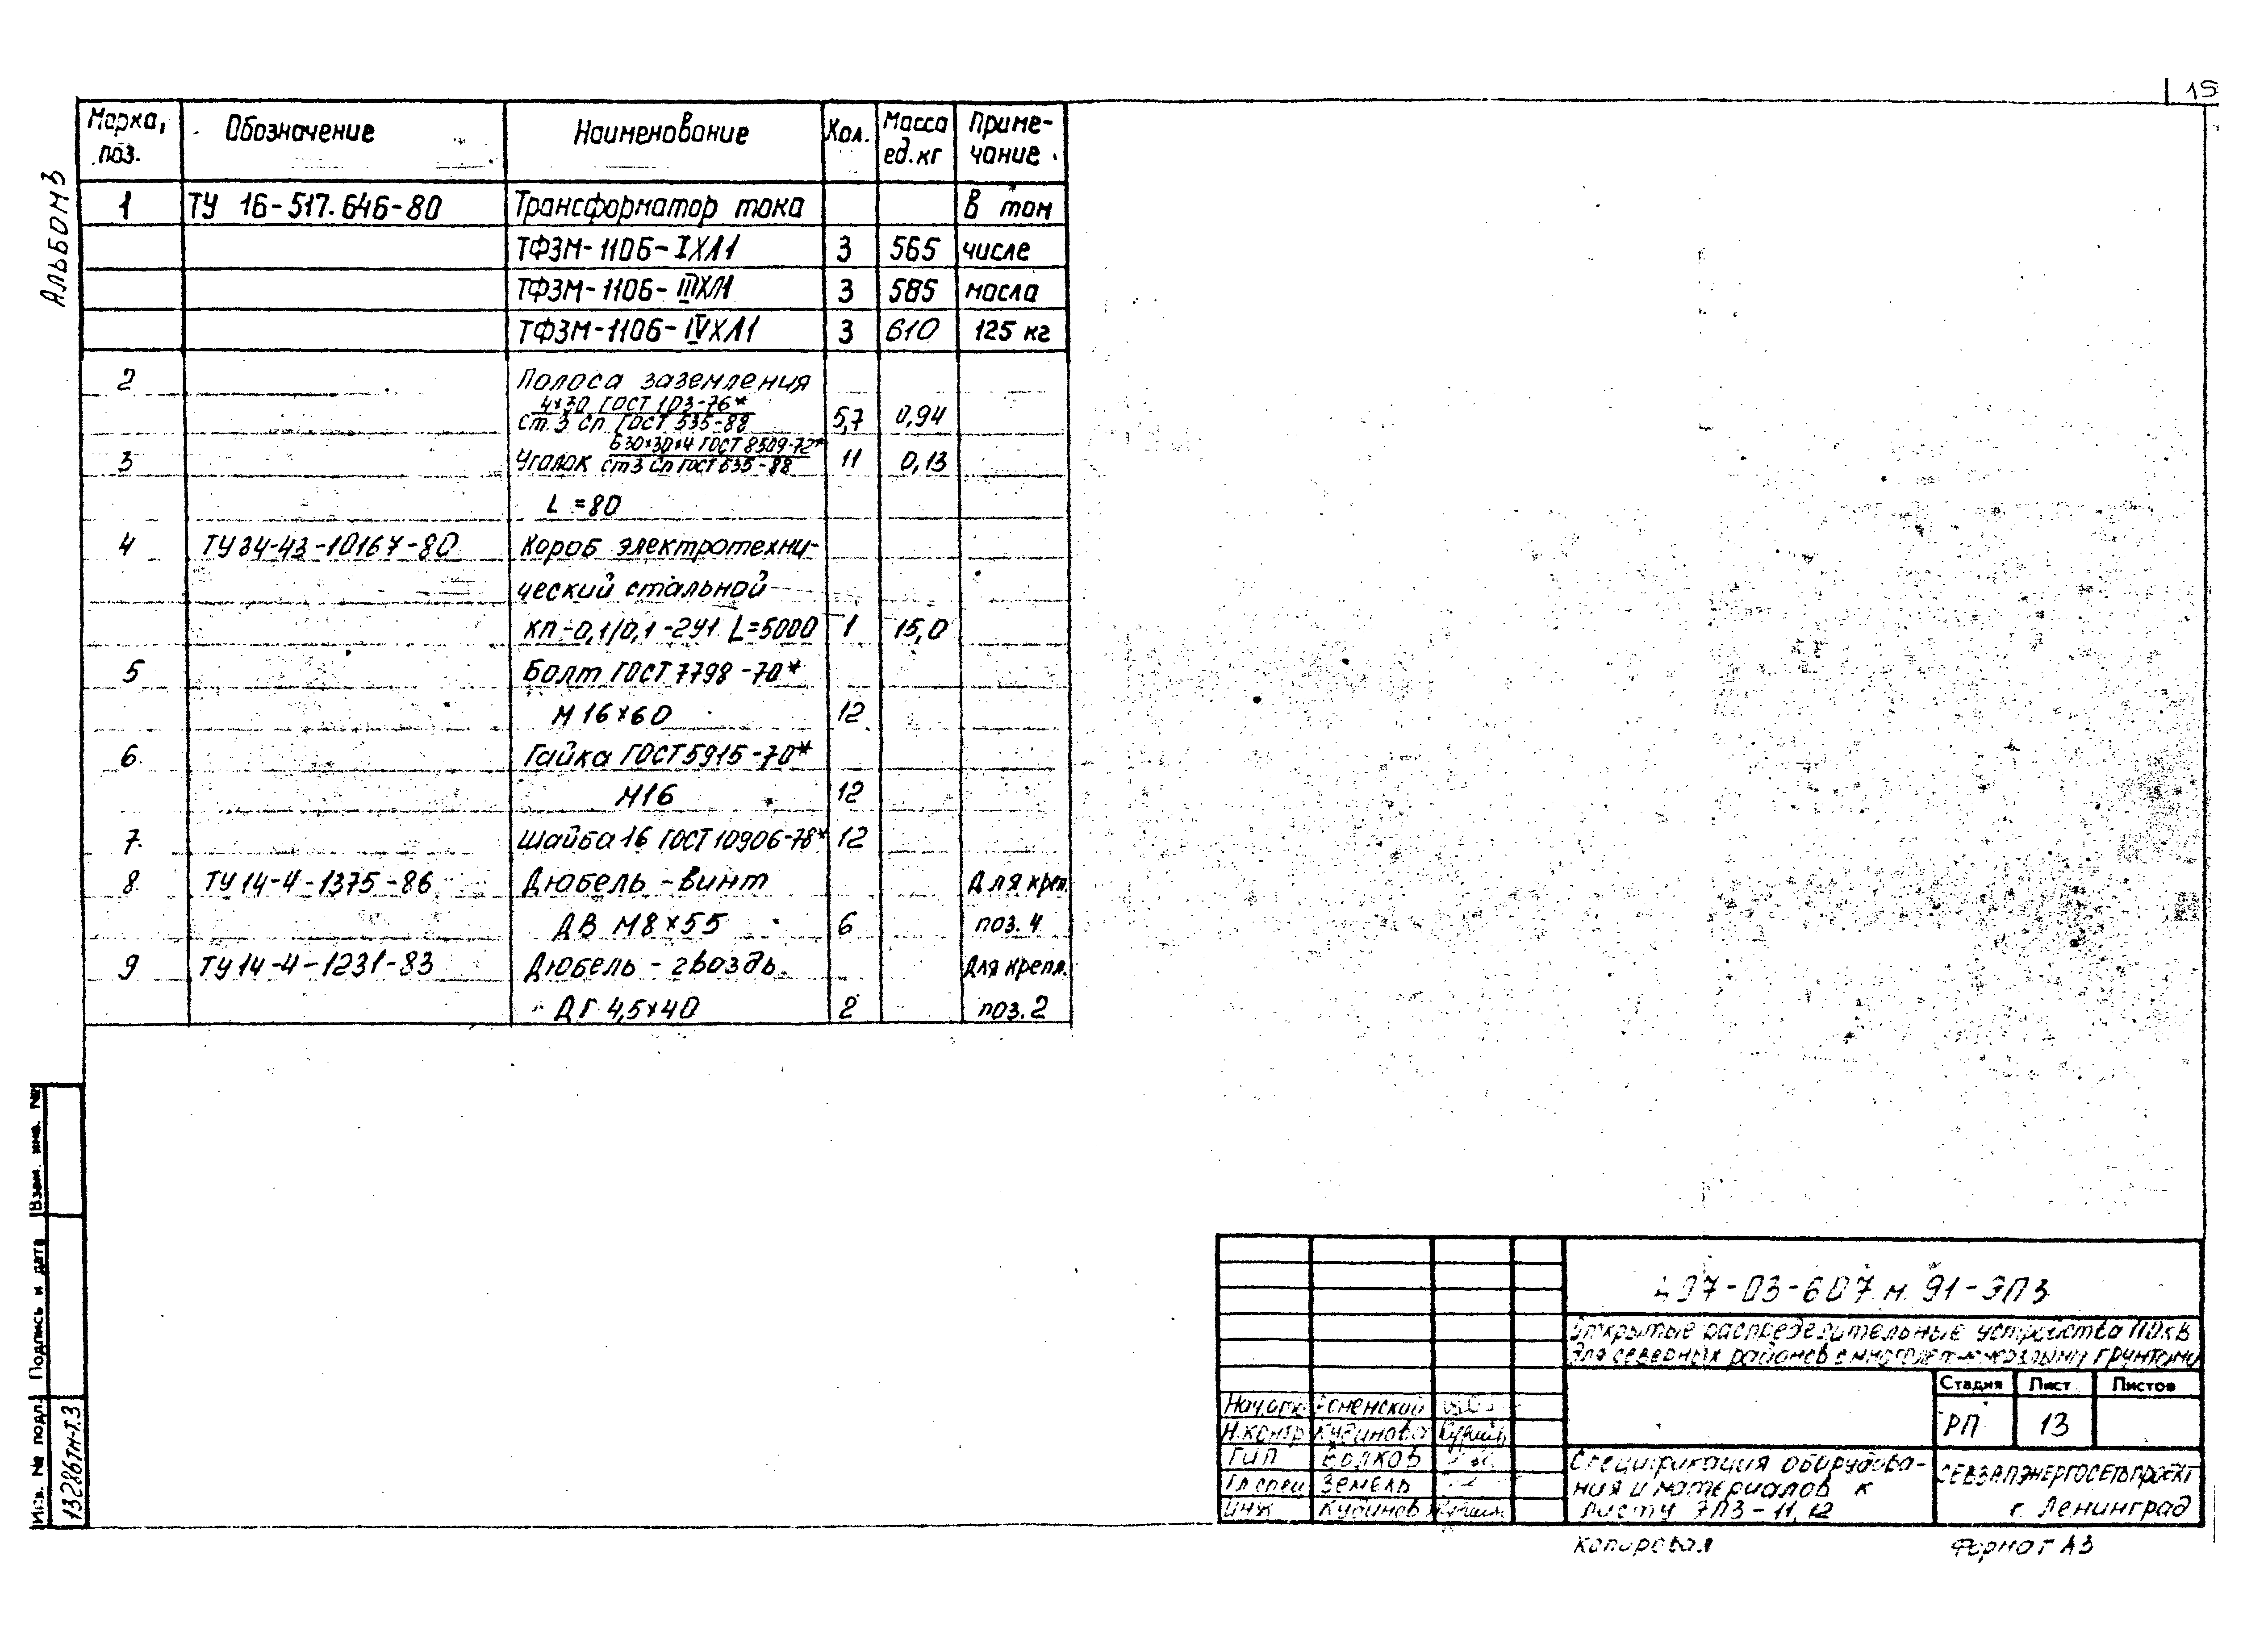 15
Альбом 3
Марка, поз. Обозначение Наименование Кол. Масса ед. кг Примечание
1 ТУ 16-517.646-80 Трансформатор тока В том
ТФЗМ-110Б-IХЛ1 3 565 числе
ТФЗМ-110Б-IIIХЛ1 3 585 масла
ТФЗМ-110Б-IVХЛ1 3 610 125 кг
2 Полоса заземления
4х30 ГОСТ 103-76*
Ст. 3 сп ГОСТ 535-88 5,7 0,94
Б30х30х4 ГОСТ 8509-72*
3 Уголок Ст3 сп ГОСТ 535-88 11 0,13
L=80
4 ТУ34-43-10167-80 Короб электротехни-
ческий стальной
КП-0,1/0,1-2У1 L=5000 1 15,0
5 Болт ГОСТ 7798-70*
М16х60 12
6 Гайка ГОСТ 5915-70*
М16 12
7. Шайба 16 ГОСТ 10906-78* 12
8. ТУ14-4-1375-86 Дюбель-винт Для креп.
ДВ М8х55 6 поз. 4
9 ТУ14-4-1231-83 Дюбель-гвоздь Для крепл.
ДГ 4,5х40 2 поз. 2
Взам. инв. №
Подпись и дата
Инв. № подл.
13286тм-т.3
407-03-607 м. 91-ЭП3
Открытые распределительные устройства 110кВ
для северных районов с многолетнемерзлыми грунтами
Стадия Лист Листов
РП 13
Нач.отд. Роменский
Н.контр Кудинова
ГИП Волков
Гл.спец Земель
Инж Кудинов
Спецификация оборудова-
ния и материалов к
листу ЭП3-11,12
СЕВЗАПЭНЕРГОСЕТЬПРОЕКТ
г. Ленинград
Копировал
Формат А3